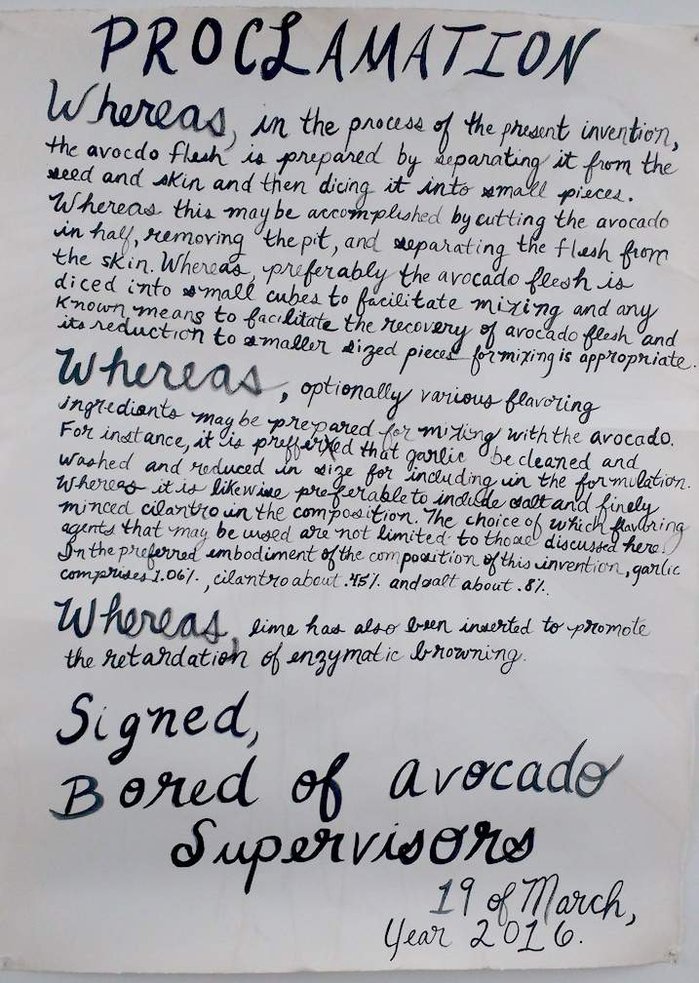 PROCLAMATION
Whereas, in the process of the present invention,
the avocdo flesh is prepared by separating it from the
seed and skin and then dicing it into small pieces.
Whereas this may be accomplished by cutting the avocado
in half, removing the pit, and separating the flesh from
the skin. Whereas, preferably the avocado flesh is
diced into small cubes to facilitate mixing and any
known means to facilitate the recovery of avocado flesh and
its reduction to smaller sized pieces for mixing is appropriate.
Whereas, optionally various flavoring
ingredients may be prepared for mixing with the avocado.
For instance, it is prefferred that garlic be cleaned and
washed and reduced in size for including in the formulation.
Whereas it is likewise preferable to include salt and finely
minced cilantro in the composition. The choice of which flavoring
agents that may be used are not limited to those discussed here.
In the preferred embodiment of the composition of this invention, garlic
comprises 1.06%, cilantro about .45% and salt about .8%.
Whereas, lime has also been inserted to promote
the retardation of enzymatic browning.
Signed,
Bored of avocado
Supervisors
19 of March,
Year 2016.